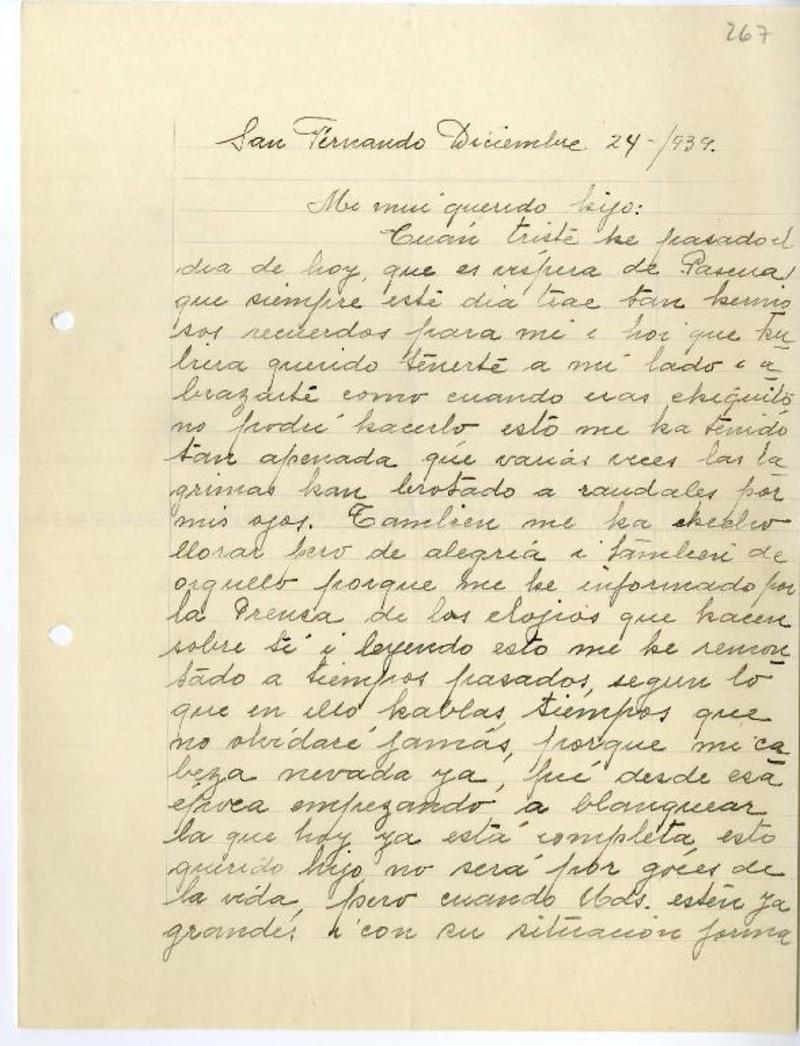 267
San Fernando Diciembre 24-/939.
Mi mui querido hijo:
Cuán triste he pasado el
dia de hoy, que es vispera de Pascua,
que siempre este dia trae tan hermo
sos recuerdos para mi i hoi que hu
biera querido tenerte a mi lado i a
brazarte como cuando eras chiquito
no podré hacerlo esto me ha tenido
tan apenada que varias veces las lá
grimas han brotado a raudales por
mis ojos. Tambien me ha hecho
llorar pero de alegria i tambien de
orgullo porque me he informado por
la Prensa de los elojios que hacen
sobre ti i leyendo esto me he remon
tado a tiempos pasados, segun lo
que en ello hablas, tiempos que
no olvidaré jamás, porque mi ca
beza nevada ya, fué desde esa
época empezando a blanquear
la que hoy ya está completa, esto
querido hijo no será por goces de
la vida, pero cuando Uds. estén ya
grandes i con su situación forma